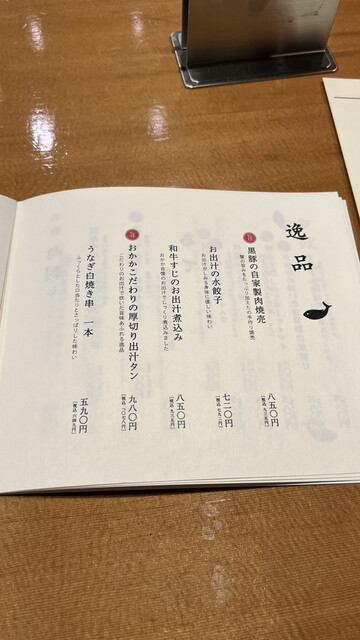 逸品
黒豚の自家製肉焼売
八五〇円
［税込 九三五円］
お出汁の水餃子
お出汁がしみる身体に優しい味わい
七二〇円
［税込 七九二円］
和牛すじのお出汁煮込み
おかか自慢のお出汁でじっくり煮込みました
八五〇円
［税込 九三五円］
おかかこだわりの厚切り出汁タン
こだわりのお出汁で炊いた旨味あふれる逸品
九八〇円
［税込 一〇七八円］
うなぎ白焼き串 一本
ふっくらとした口当たりとさっぱりした味わい
五九〇円
［税込 六四九円］